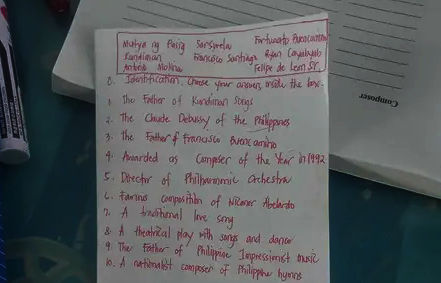 Mutya ng Pasig Sarswela Fortunato Buencamino
Kundiman Francisco Santiago Ryan Cayabyab
Antonio Molina Felipe de Leon Sr.
0. Identification. Choose your answers inside the box.
1. The Father of Kundiman Songs
2. The Claude Debussy of the Philippines
3. The Father of Francisco Buencamino
4. Awarded as Composer of the Year in 1992
5. Director of Philharmonic Orchestra
6. Famous composition of Nicanor Abelardo
7. A traditional love song
8. A theatrical play with songs and dance
9. The Father of Philippine Impressionist music
10. A nationalist composer of Philippine hymns
Composer